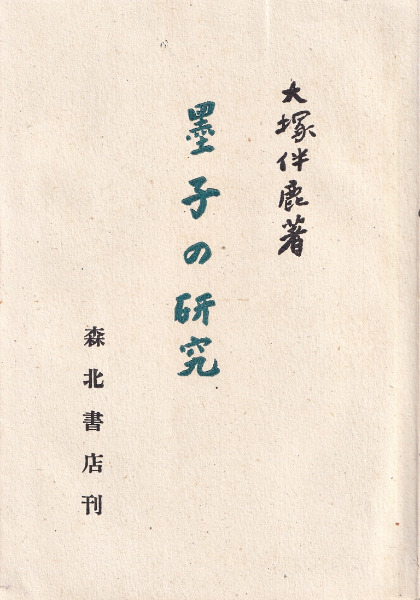 大塚伴鹿著
墨子の研究
森北書店刊